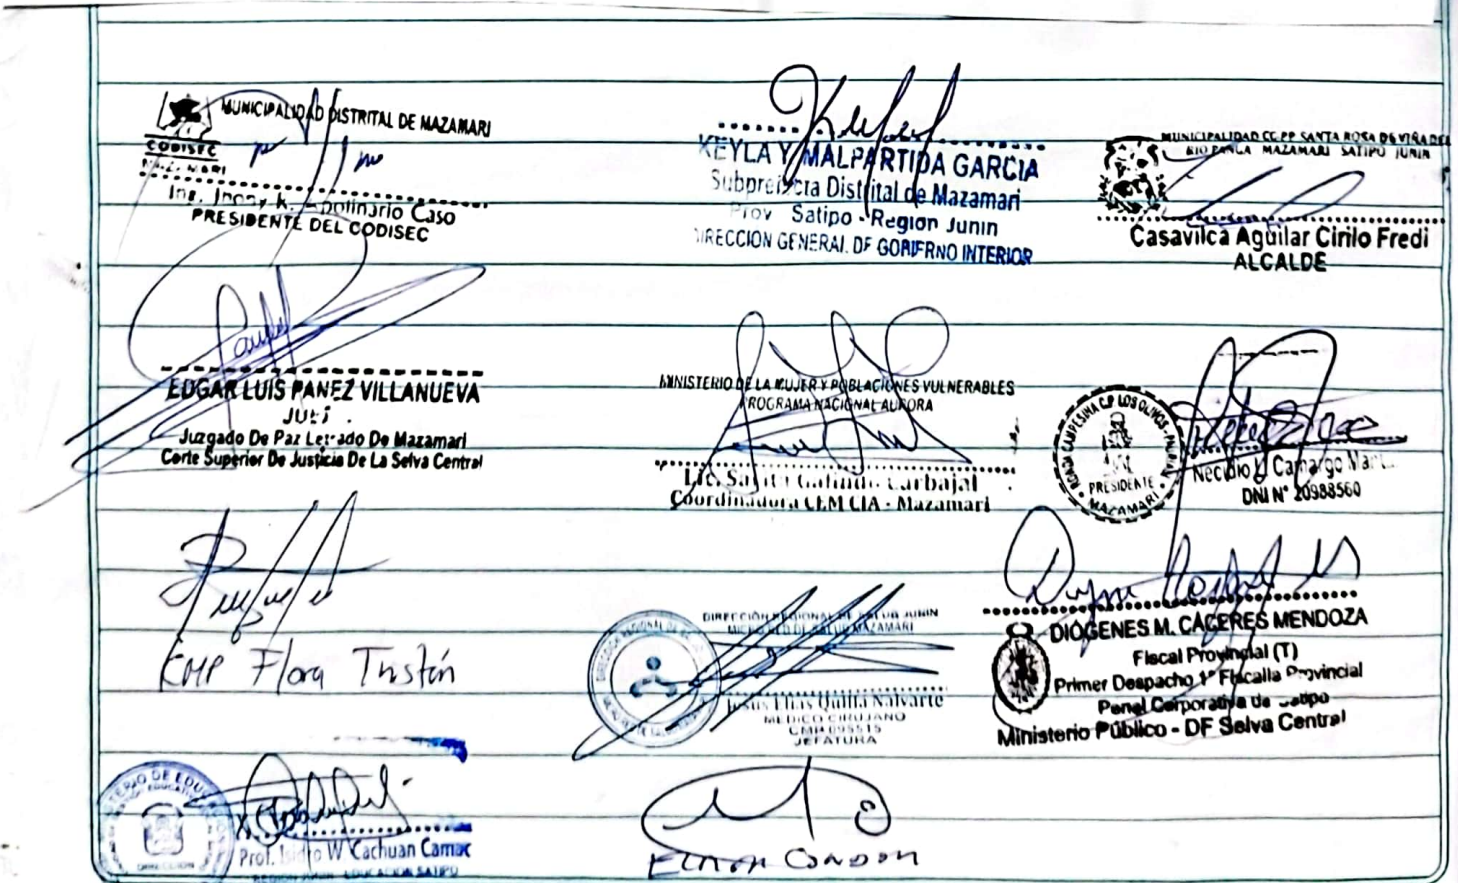 MUNICIPALIDAD DISTRITAL DE MAZAMARI
CODISEC
MAZAMARI
Ing. Jhony R. Apolinario Caso
PRESIDENTE DEL CODISEC
KEYLA Y. MALPARTIDA GARCIA
Subprefecta Distrital de Mazamari
Prov. Satipo - Region Junin
DIRECCION GENERAL DE GOBIERNO INTERIOR
MUNICIPALIDAD CC.PP SANTA ROSA DE
RIO PANGA MAZAMARI SATIPO JUNIN
Casavilca Aguilar Cirilo Fredi
ALCALDE
EDGAR LUIS PANEZ VILLANUEVA
JUEZ
Juzgado De Paz Letrado De Mazamari
Corte Superior De Justicia De La Selva Central
MINISTERIO DE LA MUJER Y POBLACIONES VULNERABLES
PROGRAMA NACIONAL AURORA
Galindo Carbajal
Coordinadora CEM CIA - Mazamari
RONDA CAMPESINA C.P. LOS OLIVOS
PRESIDENTE
MAZAMARI
Camargo
DNI N° 20988560
Flora Tristán
DIRECCIÓN REGIONAL DE SALUD JUNIN
MICRO RED DE SALUD MAZAMARI
DIRECCIÓN REGIONAL DE
Jesus Elias Quilla Nalvarte
MEDICO CIRUJANO
CMP 095515
JEFATURA
DIOGENES M. CACERES MENDOZA
Fiscal Provincial (T)
Primer Despacho 1° Fiscalia Provincial
Penal Corporativa de Satipo
Ministerio Público - DF Selva Central
MINISTERIO DE EDUCACION
DIRECCION
Prof. Isidro W. Cachuan Camac
REGION JUNIN - EDUCACION SATIPO